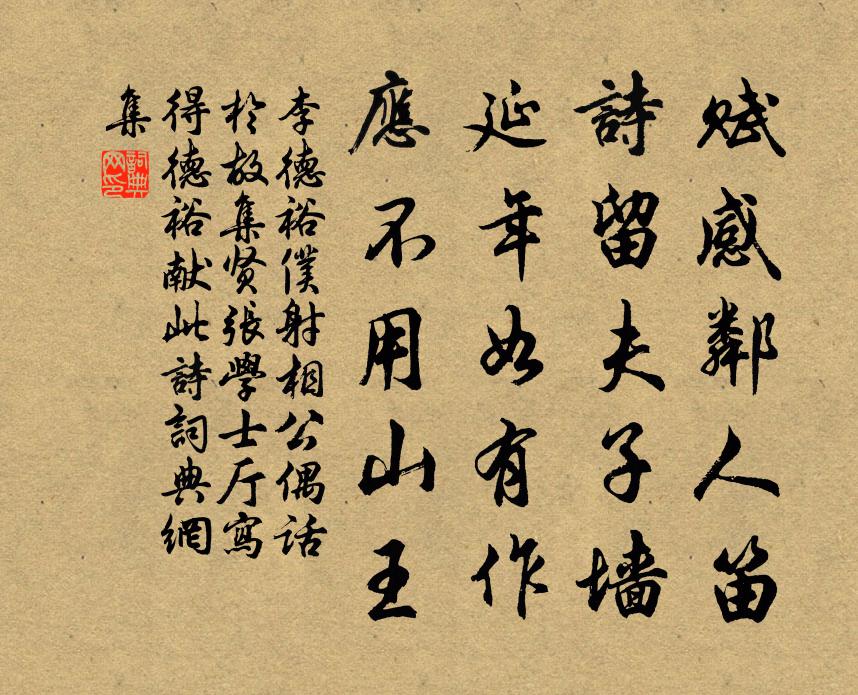 赋感鄰人笛
詩留夫子墙
延年如有作
應不用山王
李德裕僕射相公偶话
於故集贤張學士厅寫
得德裕献此詩詞典網
集
詞典
网印